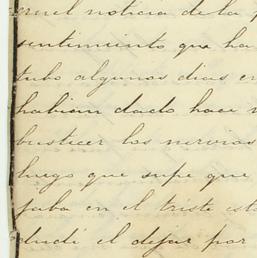 cruel noticia de la
sentimiento que ha
tubo algunos dias en
habian dado hace
bustecer los nervios
luego que supe que
jaba en el triste est
dudi el dejar por